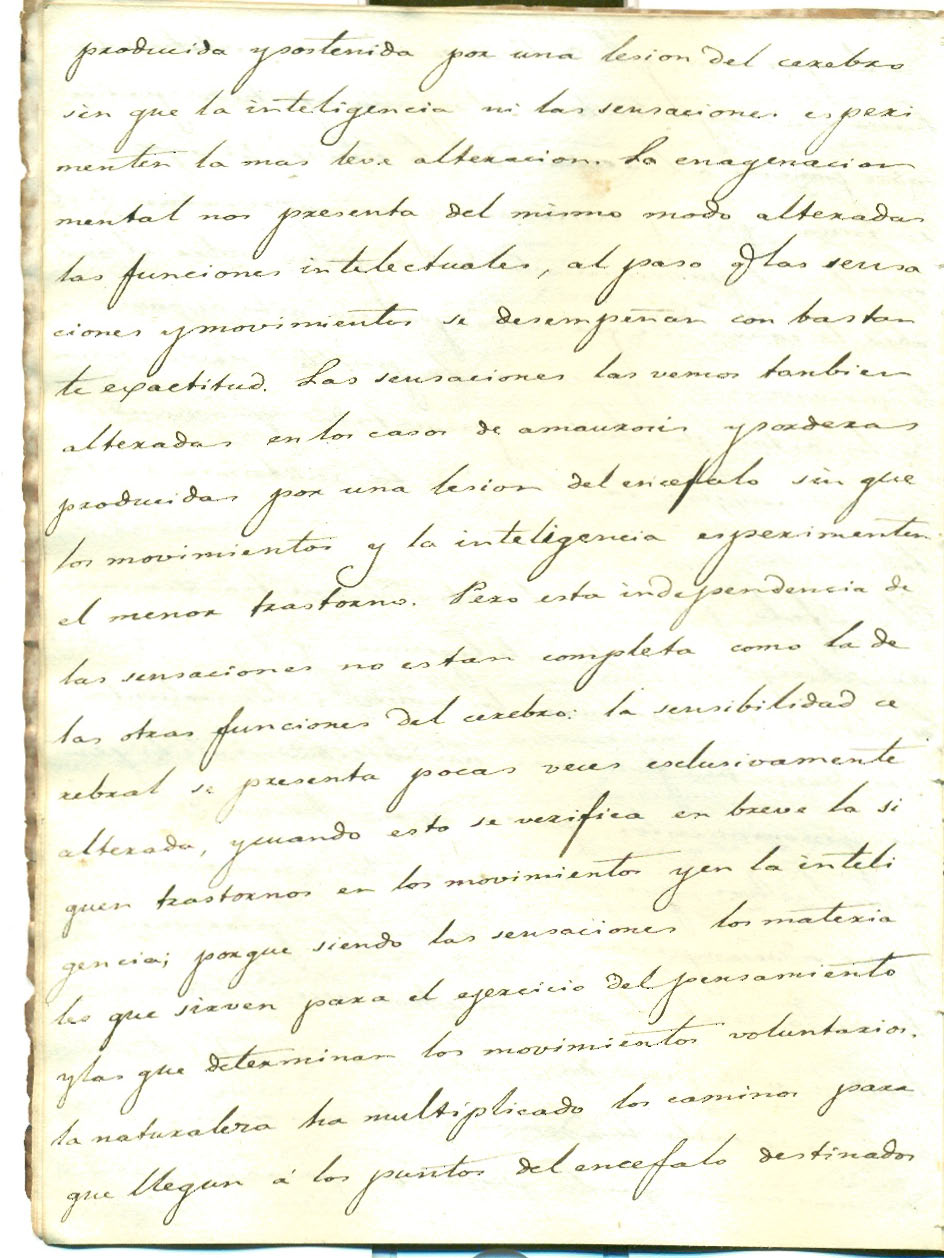 producida y sostenida por una lesion del cerebro
sin que la inteligencia ni las sensaciones esperi
menten la mas leve alteracion. La enagenacion
mental nos presenta del mismo modo alteradas
las funciones intelectuales, al paso q las sensa
ciones y movimientos se desempeñan con bastan
te exactitud. Las sensaciones las vemos tanbien
alteradas en los casos de amaurosis y sorderas
producidas por una lesion del encefalo sin que
los movimientos y la inteligencia esperimenten
el menor trastorno. Pero esta independencia de
las sensaciones no es tan completa como la de
las otras funciones del cerebro: la sensibilidad ce
rebral se presenta pocas veces esclusivamente
alterada, y cuando esto se verifica en breve la si
guen trastornos en los movimientos y en la inteli
gencia; porque siendo las sensaciones los materia
les que sirven para el ejercicio del pensamiento
y las que determinan los movimientos voluntarios.
la naturaleza ha multiplicado los caminos para
que llegan á los puntos del encefalo destinados